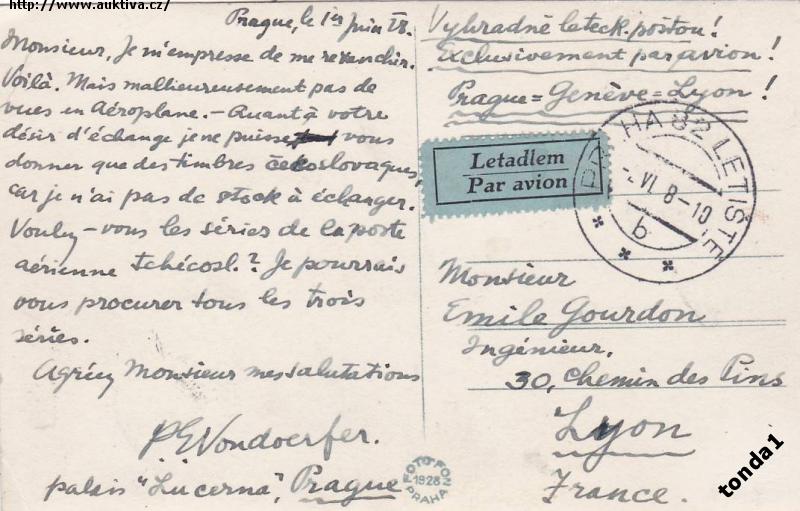 http://www.auktiva.cz/
Prague, le 1er Juin 28.
Monsieur, Je m'empresse de me revancher.
Voilà. Mais malheureusement pas de
vues en Aéroplane. — Quant à votre
désir d'échange je ne puisse vous
donner que des timbres čekoslovaques,
car je n'ai pas de stock à échanger.
Voulez-vous les séries de la poste
aérienne tchécosl.? Je pourrais
vous procurer tous les trois
séries.
Agréez Monsieur mes salutations
Vondoerfer.
palais "Lucerna", Prague
FOTOFON
1928
PRAHA
Vyhradně leteck. poštou!
Exclusivement par avion!
Prague = Genève = Lyon!
Letadlem
Par avion
PRAHA 82 LETIŠTĚ
VI. 8-10
b
Monsieur
Emile Gourdon
Ingénieur,
30, Chemin des Pins
Lyon
France.
tonda1